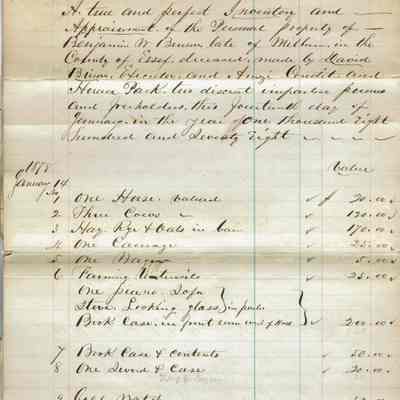 A true and perfect Inventory and
Appraisement of the Personal Property of
Benjamin W. late of Milburn in the
County of Essex, deceased, made by David
Executor, and Condit and
two discreet impartial persons
and freeholders, this fourteenth day of
January in the year of One thousand Eight
Hundred and Seventy Eight
1878 Value
January 14
No 1 One Horse valued $ 20.00
2 Three Cows 120.00
3 Hay Rye & Oats in barn 170.00
4 One Carriage 25.00
5 One Wagon 5.00
6 Farming Utensils 25.00
One piano. Sofa
Stove. Looking glass } in parlor
Book Case, in front room of House 200.00
7 Book Case & contents 50.00
8 One Sword & Case
Gold Watch